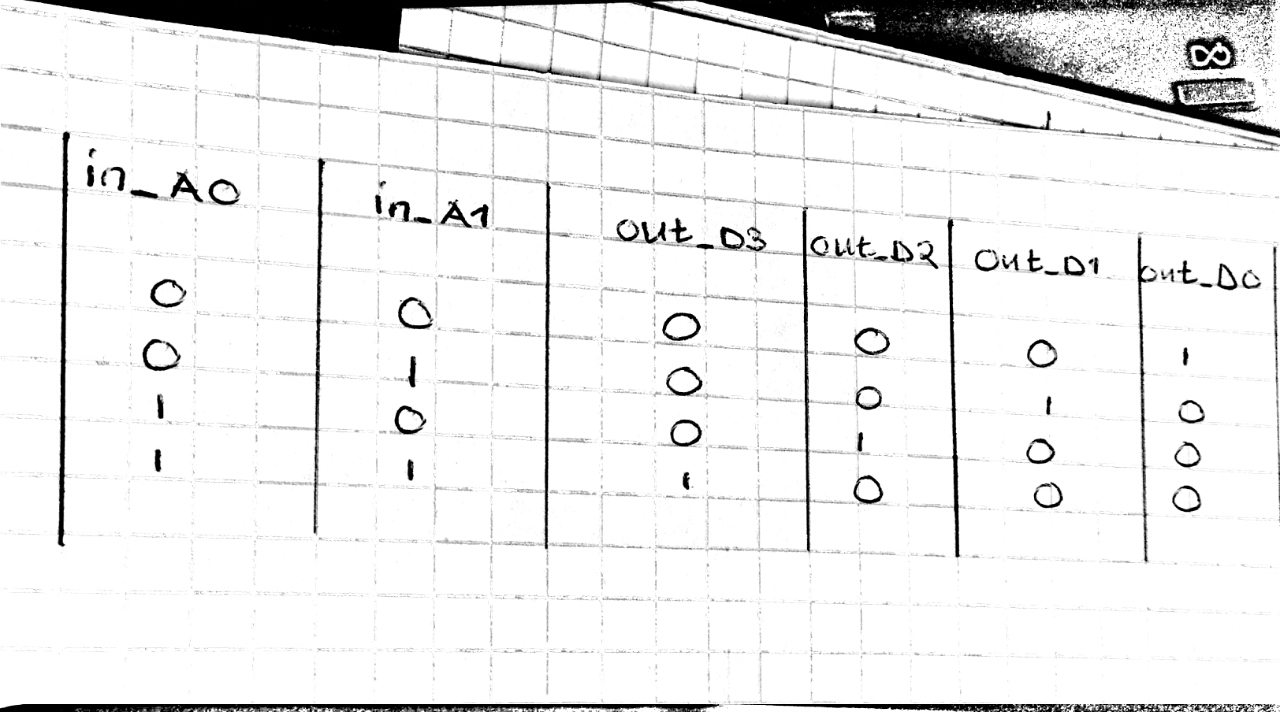 in_A0 in_A1 out_D3 out_D2 out_D1 out_D0
0 0 0 0 0 1
0 1 0 0 1 0
1 0 0 1 0 0
1 1 1 0 0 0